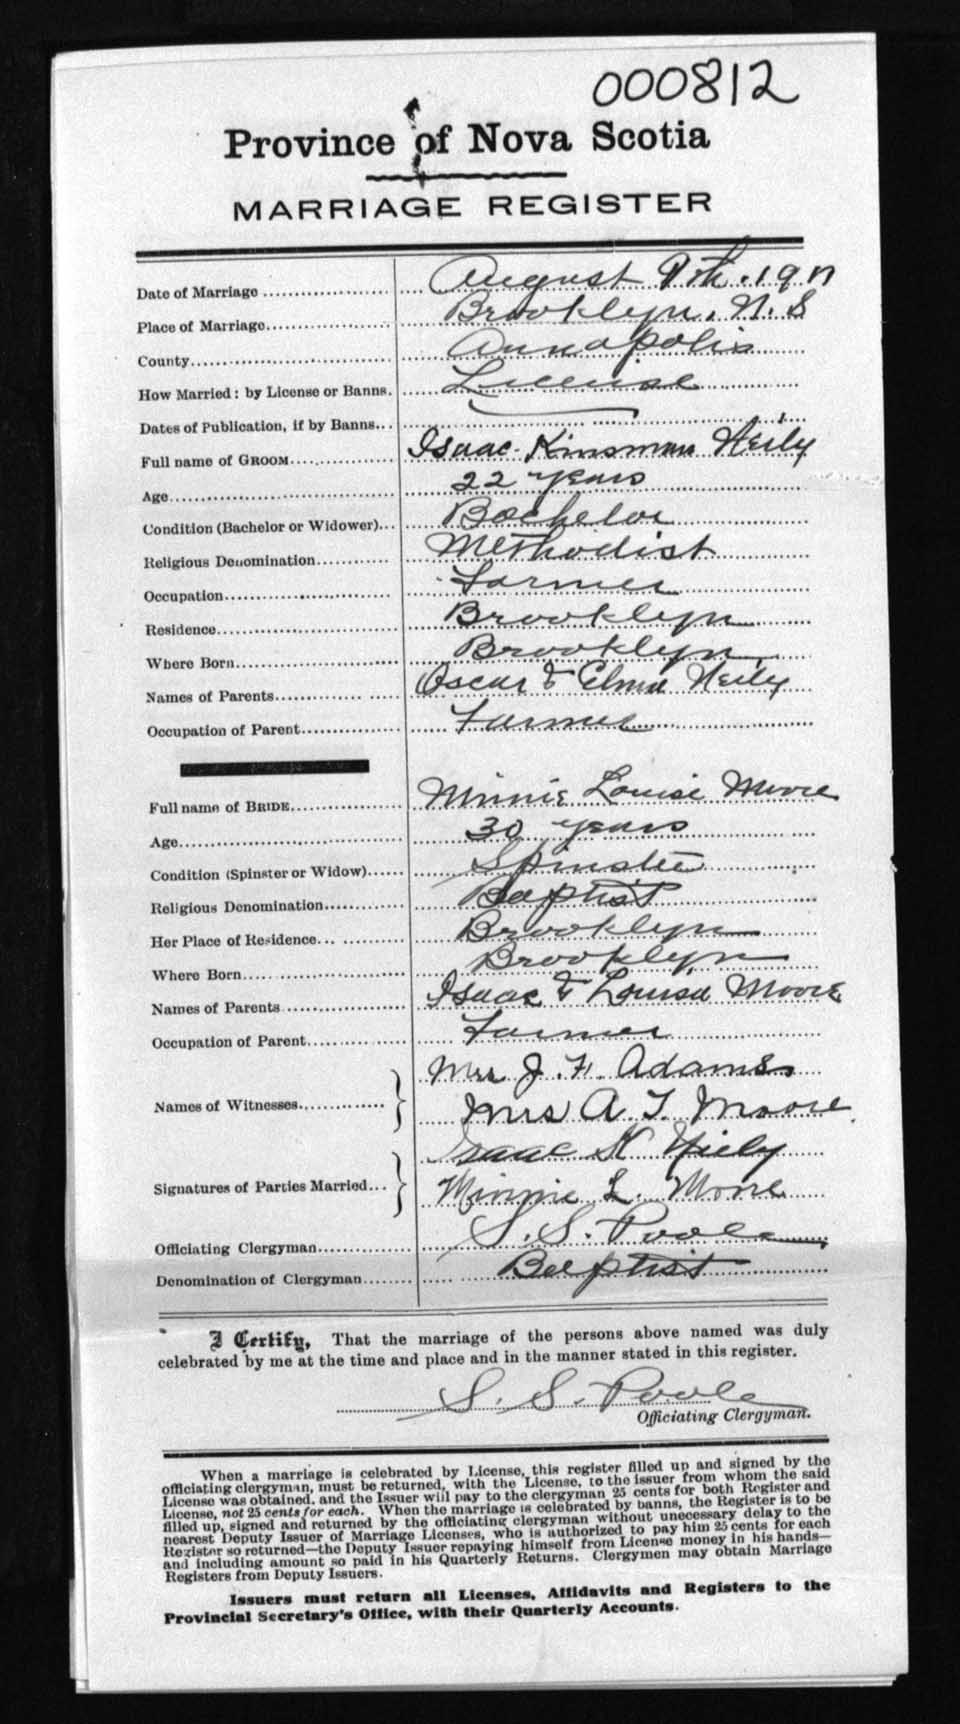 000812
Province of Nova Scotia
MARRIAGE REGISTER
Date of Marriage August 9th. 1911
Place of Marriage Brooklyn, N. S
County Annapolis
How Married: by License or Banns. License
Dates of Publication, if by Banns
Full name of GROOM Isaac Kinsman Neily
Age 22 years
Condition (Bachelor or Widower) Bachelor
Religious Denomination Methodist
Occupation Farmer
Residence Brooklyn
Where Born Brooklyn
Names of Parents Oscar & Elma Neily
Occupation of Parent Farmer
Full name of BRIDE Minnie Louise Moore
Age 30 years
Condition (Spinster or Widow) Spinster
Religious Denomination Baptist
Her Place of Residence Brooklyn
Where Born Brooklyn
Names of Parents Isaac & Louisa Moore
Occupation of Parent Farmer
Names of Witnesses Mrs J. F. Adams
Mrs A T. Moore
Signatures of Parties Married Isaac K Neily
Minnie L. Moore
Officiating Clergyman S. S. Poole
Denomination of Clergyman Baptist
I Certify, That the marriage of the persons above named was duly
celebrated by me at the time and place and in the manner stated in this register.
S. S. Poole
Officiating Clergyman.
When a marriage is celebrated by License, this register filled up and signed by the
officiating clergyman, must be returned, with the License, to the issuer from whom the said
License was obtained, and the Issuer will pay to the clergyman 25 cents for both Register and
License, not 25 cents for each. When the marriage is celebrated by banns, the Register is to be
filled up, signed and returned by the officiating clergyman without unnecessary delay to the
nearest Deputy Issuer of Marriage Licenses, who is authorized to pay him 25 cents for each
Register so returned—the Deputy Issuer repaying himself from License money in his hands—
and including amount so paid in his Quarterly Returns. Clergymen may obtain Marriage
Registers from Deputy Issuers.
Issuers must return all Licenses, Affidavits and Registers to the
Provincial Secretary's Office, with their Quarterly Accounts.